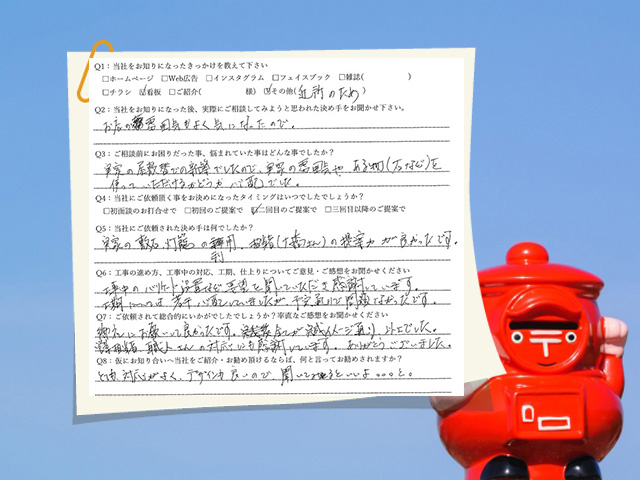 Q1：当社をお知りになったきっかけを教えて下さい
□ホームページ □Web広告 □インスタグラム □フェイスブック □雑誌( )
□チラシ ☑看板 □ご紹介( 様) ☑その他(近所のため)
Q2：当社をお知りになった後、実際にご相談してみようと思われた決め手をお聞かせ下さい。
お店の雰囲気がよく気になったので。
Q3：ご相談前にお困りだった事、悩まれていた事はどんな事でしたか？
実家の建替での新築でしたので、実家の雰囲気や、ある物(石など)を
使っていただけるかどうか心配でした。
Q4：当社にご依頼頂く事をお決めになったタイミングはいつでしたでしょうか？
□初面談のお打合せで □初回のご提案で ☑二回目のご提案で □三回目以降のご提案で
Q5：当社にご依頼された決め手は何でしたか？
実家の敷石、灯籠の利用、の提案力が良かったです。
Q6：工事の進め方、工事中の対応、工期、仕上りについてご意見・ご感想をお聞かせください
工事中の設置など要望を聞いていただき感謝しています。
工期については若干心配していましたが、天気にて問題なかったです。
Q7：ご依頼されて総合的にいかがでしたでしょうか？率直なご感想をお聞かせください
御社にお願いして良かったです。
職人さんの対応にも感謝しています。ありがとうございました。
Q8：仮にお知り合いへ当社をご紹介・お勧め頂けるならば、何と言ってお勧めされますか？
とても対応がよく、デザインも良いので、聞いてみるといいよ。。。と。